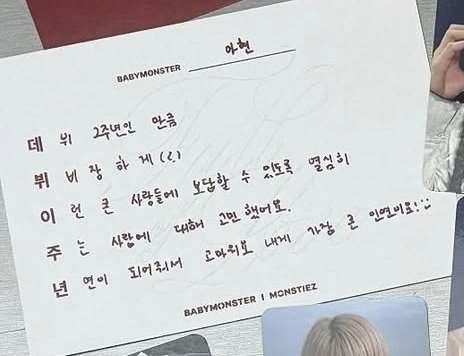 아현
BABYMONSTER
데 뷔 2주년인 만큼
뷔 비 장 하 게 (?)
이 런 큰 사랑들에 보답할 수 있도록 열심히
주 는 사랑에 대해 고민했어요.
년 연이 되어줘서 고마워요 내게 가장 큰 인연이요!
BABYMONSTER | MONSTIEZ